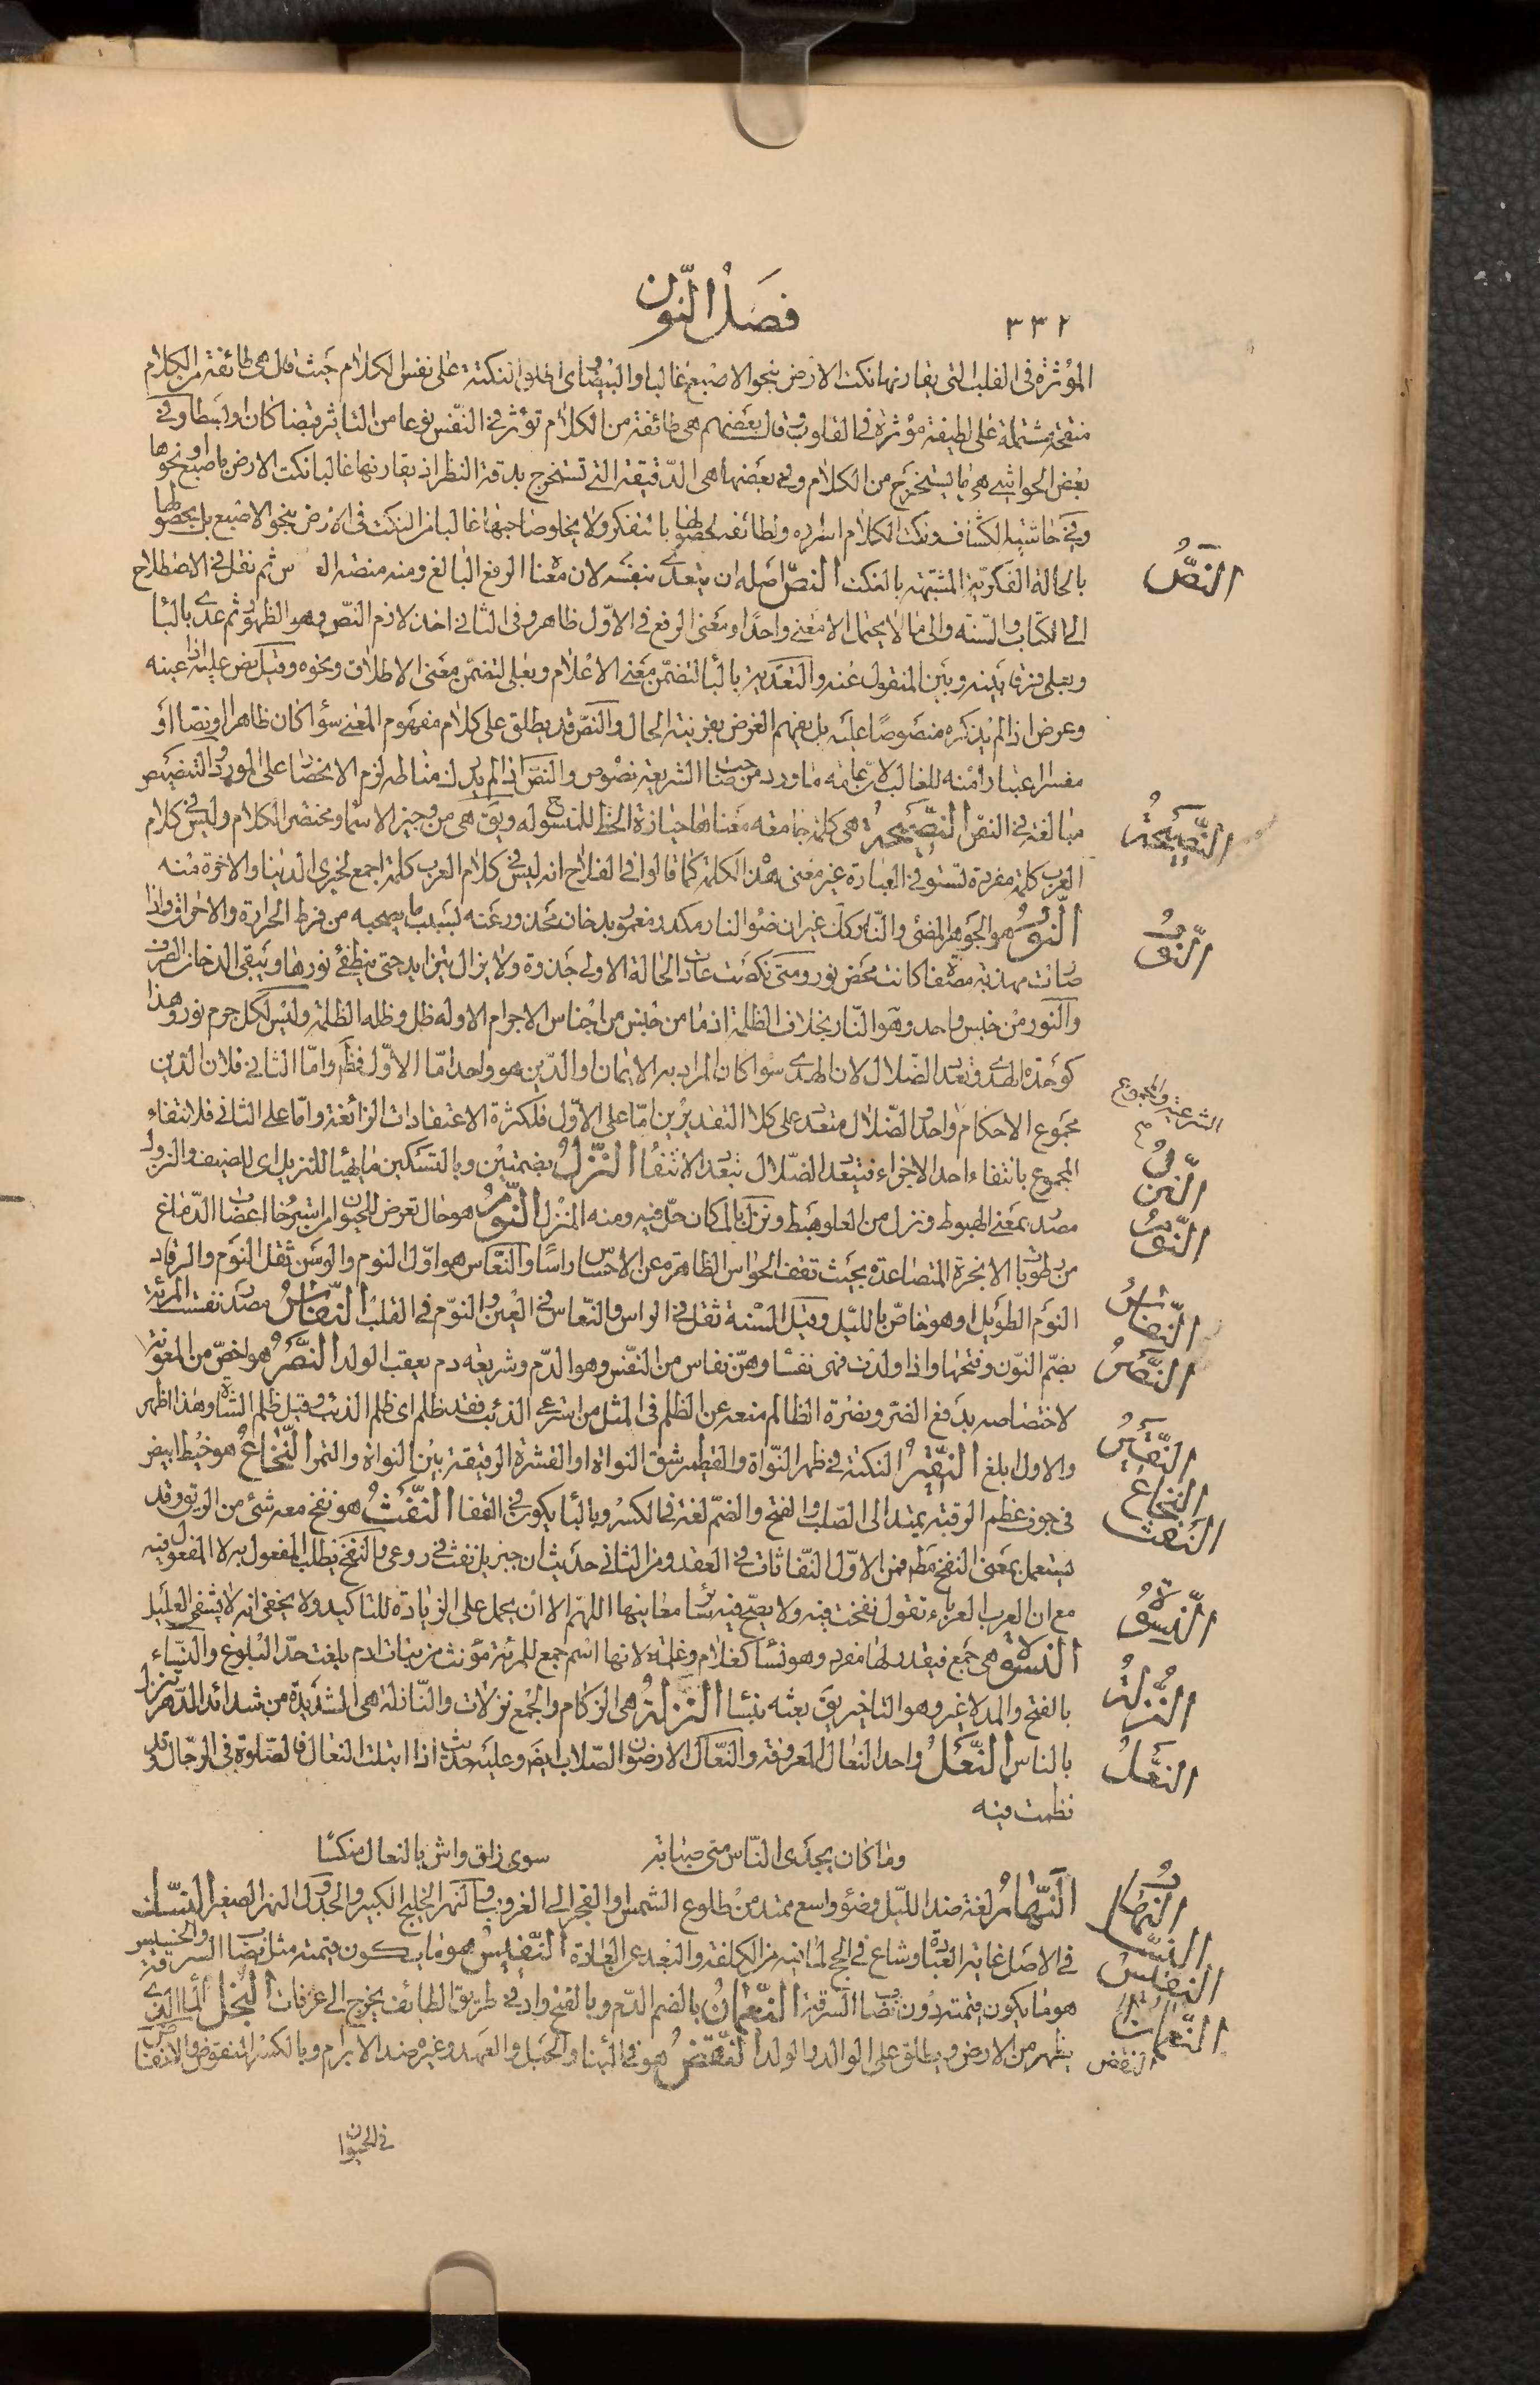 ٣٣٢
فصل النون
المؤثرة فى القلب التى يقارنها نكت الارض بنحو الاصبع غالبا والبيضاوى اطلق النكتة على نفس الكلام حيث قال هى طائفة من الكلام
منقحة مشتملة على لطيفة مؤثرة فى القلوب وقال بعضهم هى طائفة من الكلام تؤثر فى النفس نوعا من التاثير قبضا كان او بسطا وفى
بعض الحواشى هى ما يستخرج من الكلام وفى بعضها هى الدقيقة التى تستخرج بدقة النظر اذ يقارنها غالبا نكت الارض باصبع او نحوها
وفى حاشية الكشاف ونكت الكلام اسراره ولطائفه لحصولها بالتفكر ولا يخلو صاحبها غالبا من النكت فى الارض بنحو الاصبع بل بحصولها
بالحالة الفكرية المشبهة بالنكت النص اصله ان يتعدى بنفسه لان معناه الرفع البالغ ومنه منصة العروس ثم نقل فى الاصطلاح
الى الكتاب والسنة والى ما لا يحتمل الا معنى واحدا ومعنى الرفع فى الاول ظاهر وفى الثانى اخذ لازم النص وهو الظهور ثم عدى بالباء
وبعلى فرقا بينه وبين المنقول عنه والتعدية بالباء لتضمن معنى الاعلام وبعلى لتضمن معنى الاطلاق ونحوه وقيل نص عليه اذا عينه
وعرض اذا لم يذكره منصوصا عليه بل يفهم الغرض بقرينة الحال والنص قد يطلق على كلام مفهوم المعنى سواء كان ظاهرا او نصا او
مفسرا اعتبارا منه للغالب لان عامة ما ورد من صاحب الشريعة نصوص والنص اذا لم يدرك مناطه لزم الانحصار على المورد والتنصيص
مبالغة فى النص النصيحة هى كلمة جامعة معناها حيازة الحظ للمنصوح له ويق هى من وجيز الاسماء ومختصر الكلام وليس فى كلام
العرب كلمة مفردة تستوفى العبارة غير معنى هذه الكلمة كما قالوا فى الفلاح انه ليس فى كلام العرب كلمة اجمع لخيرى الدنيا والاخرة منه
النور هو الجوهر المضئ والنار كك غير ان ضوء النار مكدر مغمور بدخان محذور عنه بسبب ما يصحبه من فرط الحرارة والاحراق واذا
صارت مهذبة مصفاة كانت محض نور ومتى نكصت عادت الحالة الاولى جذوة ولا يزال يتزايد حتى ينطفئ نورها ويبقى الدخان الصرف
والنور من جنس واحد وهو النار بخلاف الظلمة اذ ما من جنس من اجناس الاجرام الا وله ظل وظله الظلمة وليس لكل جرم نور وهذا
كوحدة الهدى وتعدد الضلال لان الهدى سواء كان المراد به الايمان او الدين هو واحد اما الاول فظ واما الثانى فلان الدين
مجموع الاحكام واحد والضلال متعدد على كلا التقديرين اما على الاول فلكثرة الاعتقادات الزائغة واما على الثانى فلانتفاء
المجموع بانتفاء احد الاجزاء فيتعدد الضلال بتعدد الانتفاء النزل بضمتين وبالتسكين ما يهيأ للنزيل اى للضيف والنزول
مصدر بمعنى الهبوط ونزل من العلو هبط ونزل بالمكان حل فيه ومنه المنزل النوم هو حال تعرض للحيوان من استرخاء اعصاب الدماغ
من رطوبات الابخرة المتصاعدة بحيث تقف الحواس الظاهرة عن الاحساس راسا والنعاس هو اول النوم والوسن ثقل النوم والرقاد
النوم الطويل او هو خاص بالليل وقيل السنة ثقل فى الراس والنعاس فى العين والنوم فى القلب النفاس مصدر نفست المرئة
بضم النون وفتحها واذا ولدت فهى نفساء وهن نفاس من النفس وهو الدم وشريعة دم يعقب الولد النصر هو اخص من المعونة
لاختصاصه بدفع الضر ونصرة الظالم منعه عن الظلم فى المثل من استرعى الذئب فقد ظلم اى ظلم الذئب وقيل ظلم الشاة وهذا اظهر
والاول ابلغ النقير النكتة فى ظهر النواة والقطمير شق النواة او القشرة الرقيقة بين النواة والتمر النخاع هو خيط ابيض
فى جوف عظم الرقبة يمتد الى الصلب والفتح والضم لغة فى الكسر وبالباء يكون فى القفا النفث هو نفخ معه شئ من الريق وقد
يستعمل بمعنى النفخ مط فمن الاول النفاثات فى العقد ومن الثانى حديث ان جبريل نفث فى روعى والنفخ يطلب المفعول به لا المفعول فيه
مع ان العرب العرباء تقول نفخت فيه ولا يصح فيه معانيها اللهم الا ان يحمل على الزيادة للتاكيد ولا يخفى انه لا يشفى العليل
النسوة هى جمع فيقدر لها مفرد وهو نساء كغلام وغلمة لانها اسم جمع للمرئة مؤنث من بنات ادم بلغت حد البلوغ والنساء
بالفتح والمد لا غير وهو التاخير يق بعته بنساء النزلة هى الزكام والجمع نزلات والنازلة هى الشديدة من شدائد الدهر تنزل
بالناس النعل واحد النعال المعروفة والنعال الارضون الصلاب ايض وعليه حديث اذا ابتلت النعال فالصلوة فى الرحال وقد
نظمت فيه
وما كان يجدى الناس متى صبابة سوى زاق واش بالنعال منكسا
النهار لغة ضد الليل وضوء واسع ممتد من طلوع الشمس او الفجر الى الغروب والنهر الخليج الكبير والجدول النهر الصغير النسك
فى الاصل غاية العبادة وشاع فى الحج لما فيه من الكلفة والبعد عن العادة النفيس هو ما يكون قيمته مثل نصاب السرقة والخسيس
هو ما يكون قيمته دون نصاب السرقة النعمان بالضم الدم وبالفتح واد فى طريق الطائف يخرج الى عرفات النجل الماء الذى
يظهر من الارض ويطلق على الوالد والولد النقض هو فى البناء والحبل والعهد وغيره ضد الابرام وبالكسر المنقوض والانقاض
فى الحيوان
النص
النصيحة
النور
الشرعية والمجموع
النزل
النوم
النفاس
النصر
النقير
النخاع
النفث
النسوة
النزلة
النعل
النهار
النفيس
النعمان
النقض